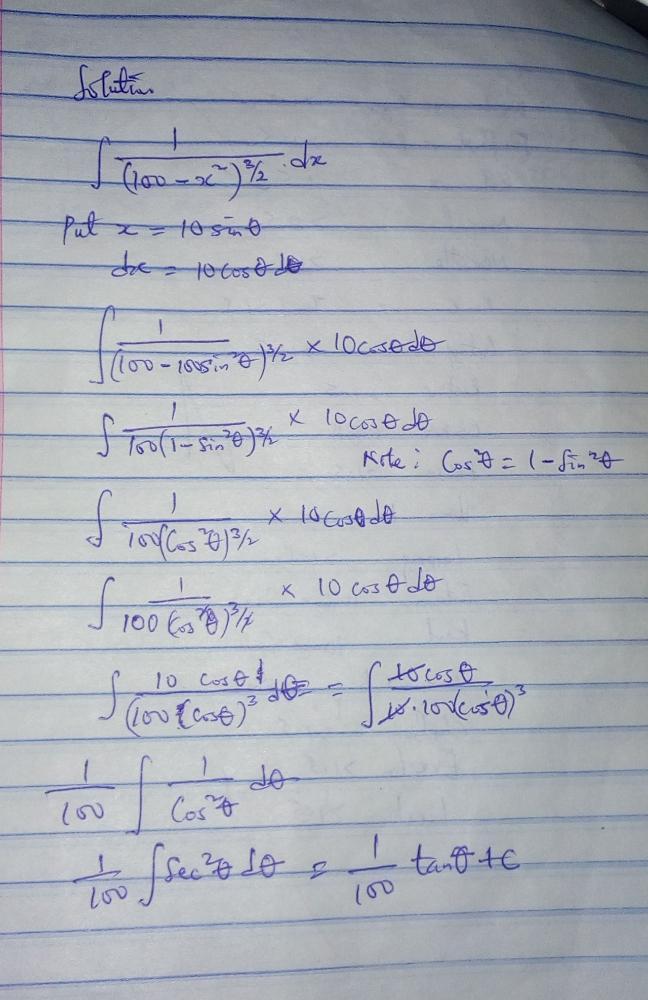 Solution
∫ 1/(100 - x²)^3/2 . dx
Put x = 10 sinθ
dx = 10 cosθ dθ
∫ 1/(100 - 100sin²θ)^3/2 × 10cosθdθ
∫ 1/100(1 - sin²θ)^3/2 × 10cosθ dθ
Note: Cos²θ = 1 - Sin²θ
∫ 1/100(Cos²θ)^3/2 × 10cosθdθ
∫ 1/100(Cos²θ)^3/2 × 10 cosθ dθ
∫ 10 cosθ/(100(cosθ)³ dθ = ∫ 10cosθ/10.100(cosθ)³
1/100 ∫ 1/Cos²θ dθ
1/100 ∫ Sec²θ dθ = 1/100 tanθ + C